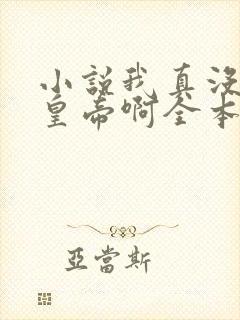 小說我真沒
皇帝啊全本
亞當斯